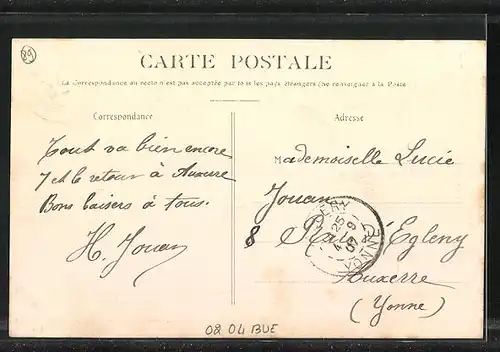 89
CARTE POSTALE
La Correspondance au recto n'est pas acceptée par tous les pays étrangers (Se renseigner à la Poste)
Correspondance
Adresse
Tout va bien encore
et le retour à Auxerre
Bons baisers à tous.
H. Jouan
Mademoiselle Lucie
Jouan
8 Rue d'Egleny
Auxerre
(Yonne)
25
09
YONNE
08 04 BUE